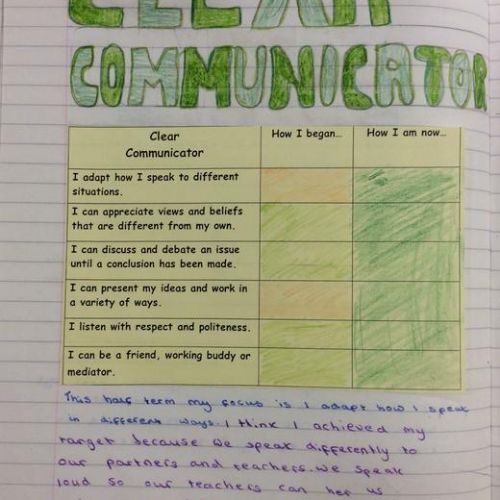 CLEAR
COMMUNICATOR
Clear
Communicator
How I began...
How I am now...
I adapt how I speak to different
situations.
I can appreciate views and beliefs
that are different from my own.
I can discuss and debate an issue
until a conclusion has been made.
I can present my ideas and work in
a variety of ways.
I listen with respect and politeness.
I can be a friend, working buddy or
mediator.
This half term my focus is I adapt how I speak
in different ways. I think I achieved my
target because we speak differently to
our partners and teachers. We speak
loud so our teachers can her us